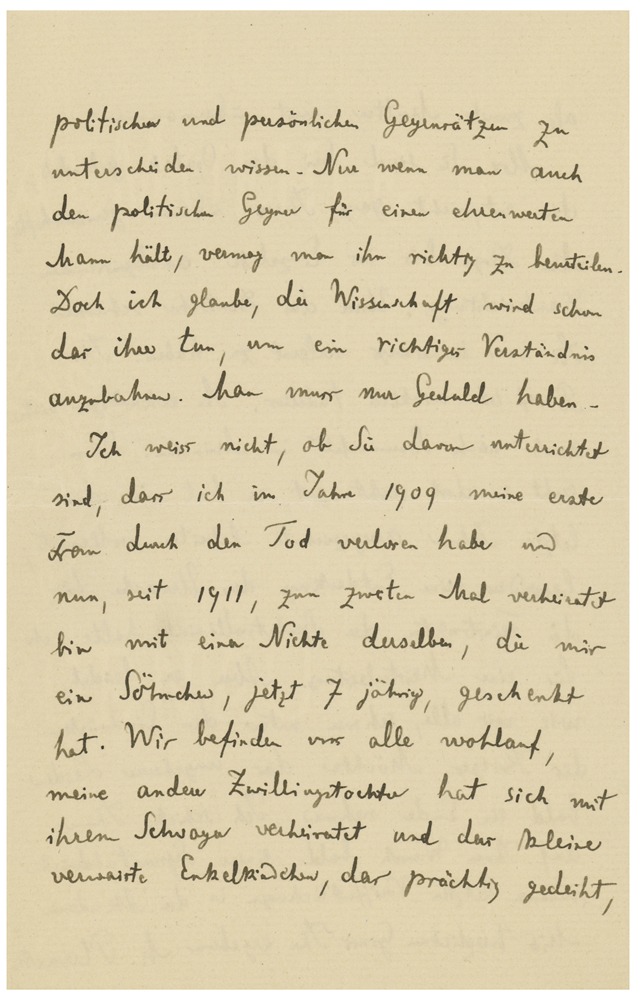 politischen und persönlichen Gegensätzen zu
unterscheiden wissen. Nur wenn man auch
den politischen Gegner für einen ehrenwerten
Mann hält, vermag man ihn richtig zu beurteilen.
Doch ich glaube, die Wissenschaft wird schon
das ihre tun, um ein richtiges Verständnis
anzubahnen. Man muss nur Geduld haben.
Ich weiss nicht, ob Sie davon unterrichtet
sind, dass ich im Jahre 1909 meine erste
Frau durch den Tod verloren habe und
nun, seit 1911, zum zweiten Mal verheiratet
bin mit einer Nichte derselben, die mir
ein Söhnchen, jetzt 7 jährig, geschenkt
hat. Wir befinden uns alle wohlauf,
meine andere Zwillingstochter hat sich mit
ihrem Schwager verheiratet und das kleine
verwaiste Enkelkindchen, das prächtig gedeiht,